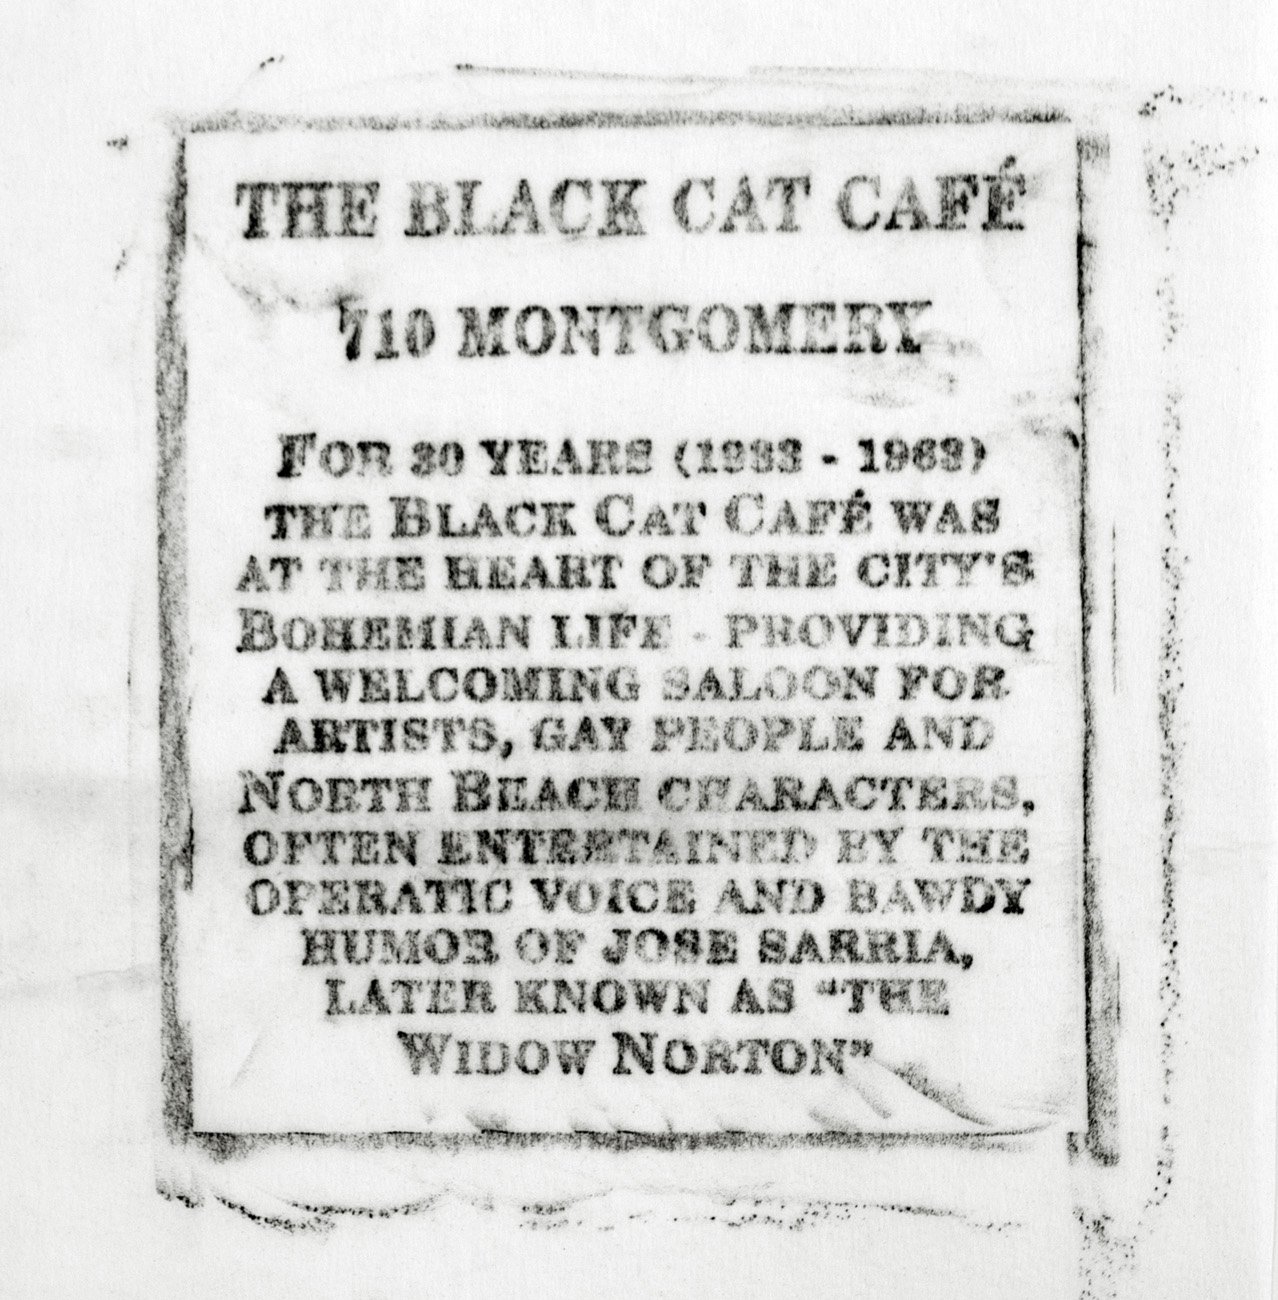 THE BLACK CAT CAFÉ
710 MONTGOMERY
FOR 30 YEARS (1933 - 1963)
THE BLACK CAT CAFÉ WAS
AT THE HEART OF THE CITY'S
BOHEMIAN LIFE - PROVIDING
A WELCOMING SALOON FOR
ARTISTS, GAY PEOPLE AND
NORTH BEACH CHARACTERS,
OFTEN ENTERTAINED BY THE
OPERATIC VOICE AND BAWDY
HUMOR OF JOSE SARRIA,
LATER KNOWN AS "THE
WIDOW NORTON"